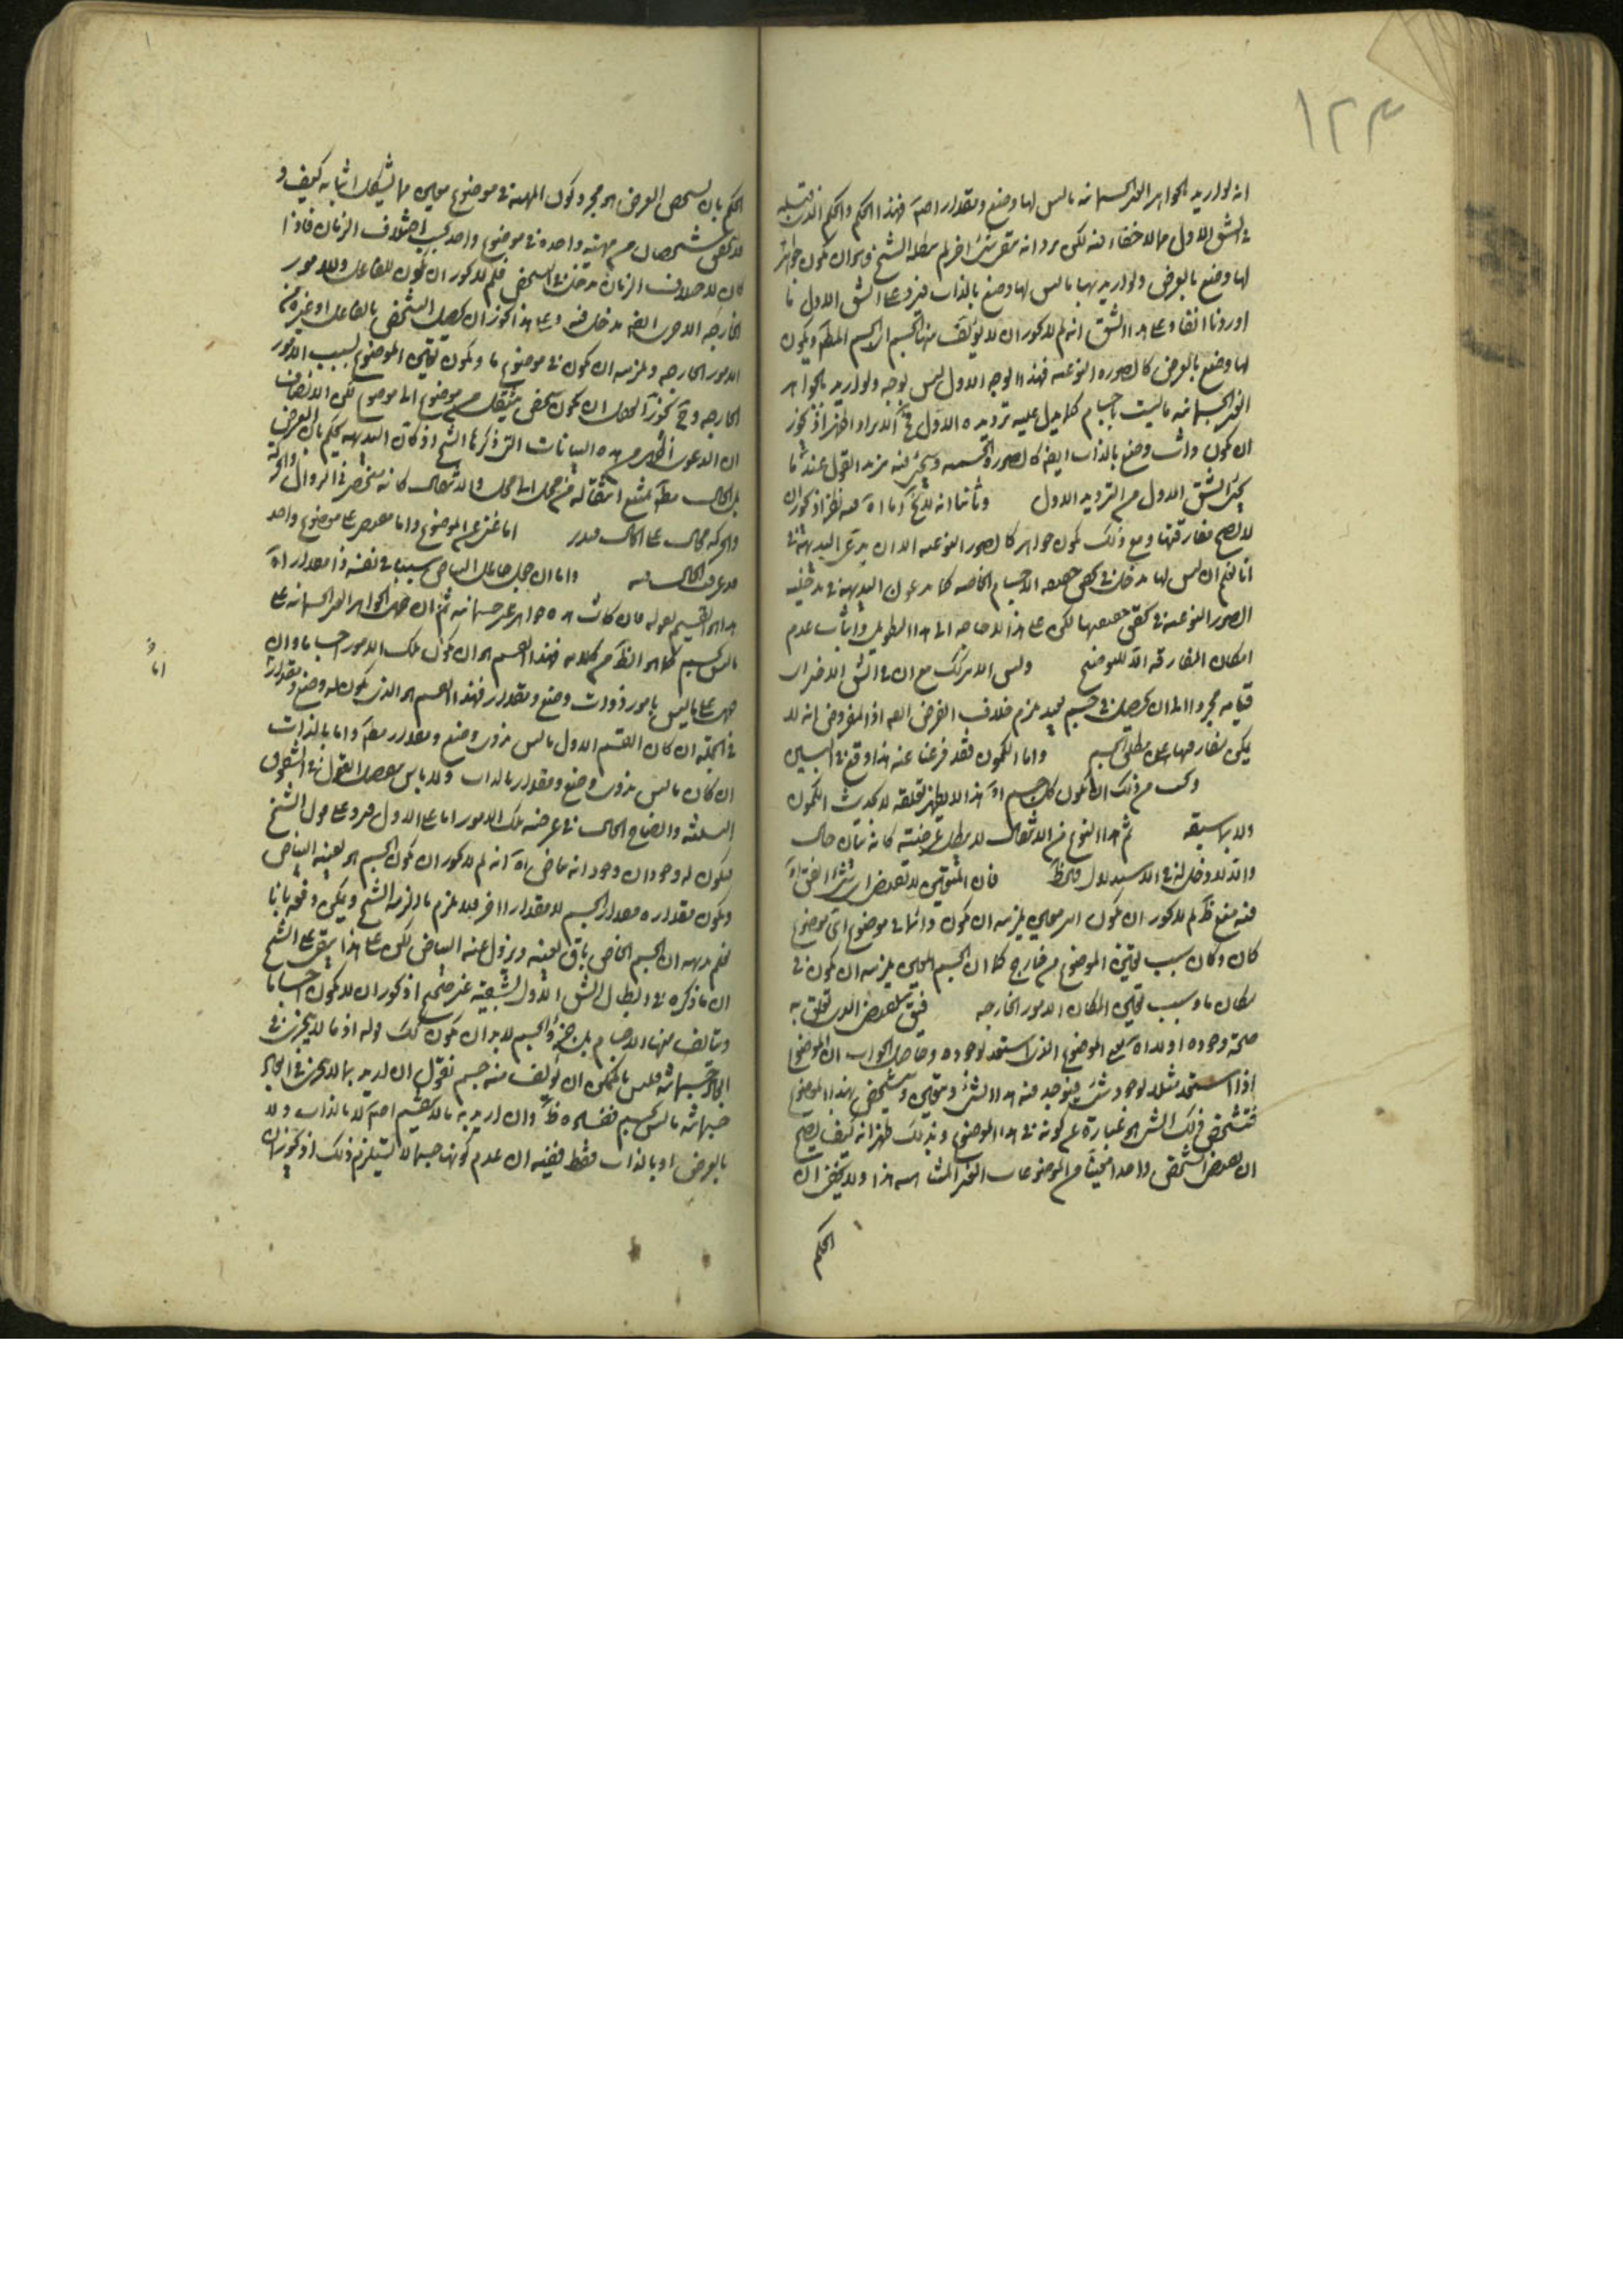 ١٢٣
انه لو اريد بالجواهر الغير الجسمانيه ما ليس لها وضع ومقدار اصلا فهذا الحكم والحكم الذى قبله
فى الشق الاول مما لا خفاء فيه لكن يرد انه بقى شق اخر لم يبطله الشيخ وهو ان يكون جواهر
لها وضع بالعرض ولو اريد بها ما ليس لها وضع بالذات فيرد على الشق الاول ما
اوردنا انفا وعلى هذا الشق انه لم لا يجوز ان لا يؤلف منها الجسم الا الجسم المطلق ويكون
لها وضع بالعرض كالصورة النوعيه فهذا الوجه الاول ليس بوجه ولو اريد بالجواهر
الغير الجسمانيه ما ليست باجسام كما يدل عليه ترديده الاول فالايراد اظهر اذ يجوز
ان يكون ذات وضع بالذات ايضا كالصورة الجسميه وسيجئ فيه مزيد القول عند ما
يجئ الشق الاول من الترديد الاول وثانيا انه لا يخ اما اه فيه نظر اذ يجوز ان
لا يصح مفارقتها ومع ذلك يكون جواهر كالصور النوعيه الا ان يدعى البديهة فى
انا نعلم ان ليس لها مدخل فى تحقق حقيقه الاجسام الخاصه كما يدعون البديهة فى مدخليه
الصور النوعيه فى تحقق حقيقتها لكن على هذا لا حاجه الى هذا التطويل واثبات عدم
امكان المفارقه الا للتوضيح وليس الامر كذلك مع ان فى الشق الاخر ان
قيامه مجردا الى ان يحصل فى جسم بعيد يلزم خلاف الفرض ايضا اذ المفروض انه لا
يمكن مفارقتها عن مطلق الجسم واما الكمون فقد فرغنا عنه هذا وقع فى البين
وليس من ذلك ان يكون كل جسم اه هذا لا يظهر تعلقه بحديث الكمون
ولا بما سبقه ثم هذا النوع من الانتقال لا يبطل عرضيته كانه بيان حال
والا فلا دخل له فى الاستدلال ظ فان المتعين لا تعرض اى شئ اتفق اه
فيه منع ظ لم لا يجوز ان يكون امر معين يلزمه ان يكون دائما فى موضوع اى موضوع
كان وكان سبب تعين الموضوع من خارج كما ان الجسم المعين يلزمه ان يكون فى
مكان ما وسبب تعين المكان الامور الخارجه فبقى العرض الذى تعلق به
صحة وجوده اولا اه يعنى الموضوع الذى استعد لوجوده وحاصل الجواب ان الموضوع
اذا استعد مثلا لوجود شئ فيوجد فيه هذا الشئ ويتعين ويتشخص بهذا الموضوع
فتشخص ذلك الشئ هو عبارة عن كونه فى هذا الموضوع وبذلك ظهر انه كيف يصح
ان يعرض لشخص واحد امحيثا من الموضوعات الغير المتناهيه هذا ولا يخفى ان
الحكم
الحكم بان تشخص العرض هو مجرد كون المهيه فى موضوع معين مما يشكل اثباته كيف و
لا يتحقق شخصان من مهيته واحده فى موضوع واحد بحسب اختلاف الزمان فاذا
كان لاختلاف الزمان مدخل فى التشخص فلم لا يجوز ان يكون للفاعل وللامور
الخارجه الاخرى ايضا مدخل فيه وعلى هذا يجوز ان يحصل التشخص بالفاعل او غيره من
الامور الخارجه ويلزمه ان يكون فى موضوع ما ويكون تعين الموضوع بسبب الامور
الخارجه وح يجوز ان يكون شخص ينتقل من موضوع الى موضوع لكن الانصاف
ان الدعوى اظهر من هذه البيانات التى ذكرها الشيخ اذ كان البديهه يحكم بان العرض
بل الحال مط يمتنع انتقاله من محل الى محل والانتقال كانه منحصر فى الزوال والحركه
والحركه محال على الحال فتدبر اما غنى عن الموضوع واما مقتصر على موضوع واحد
قد عرفت الحال فيه واما ان يجعل حامل البياض سببا فى نفسه ذا مقدار اه
هذا هو القسيم لقوله فان كانت هذه جواهر غير جسمانيه ثم ان حمل الجواهر الغير الجسمانيه على
ما ليس بجسم كما هو الظ من كلامه فهذا القسيم هو ان يكون تلك الامور اجساما وان
حملت على ما ليس بامور ذوات وضع ومقدار فهذا القسيم هو الذى يكون له وضع ومقدار
فى الجمله ان كان القسم الاول ما ليس بذى وضع ومقدار مط واما بالذات
ان كان ما ليس بذى وضع ومقدار بالذات ولا باس بتفصيل القول فى الشقوق
الثلثه وايضاح الحال فى عرضيه تلك الامور اما على الاول فيرد على قول الشيخ
فيكون له وجودان وجود انه بياض اه انه لم لا يجوز ان يكون الجسم هو بعينه البياض
ويكون مقداره مقدار الجسم لا مقدارا اخر فلا يلزم ما الزمه الشيخ ويمكن دفعه بانا
نعلم بديهه ان الجسم الخاص باق بعينه ويزول عنه البياض لكن على هذا يبقى على الشيخ
ان ما ذكره فى ابطال الشق الاول بشقيه غير صحيح اذ يجوز ان لا يكون اجساما
ويتالف منها الاجسام بل جزء الجسم لا بد ان يكون كك قوله اذ ما لا يتجزى فى
ابعاد جسمانيه فليس بالممكن ان يؤلف منه جسم نقول ان اريد بما لا يتجزى فى ابعاد
جسمانيه ما ليس بجسم ففساده ظ وان اريد به ما لا ينقسم اصلا لا بالذات ولا
بالعرض او بالذات فقط ففيه ان عدم كونها جسما لا يستلزم ذلك اذ يجوز ان
اما